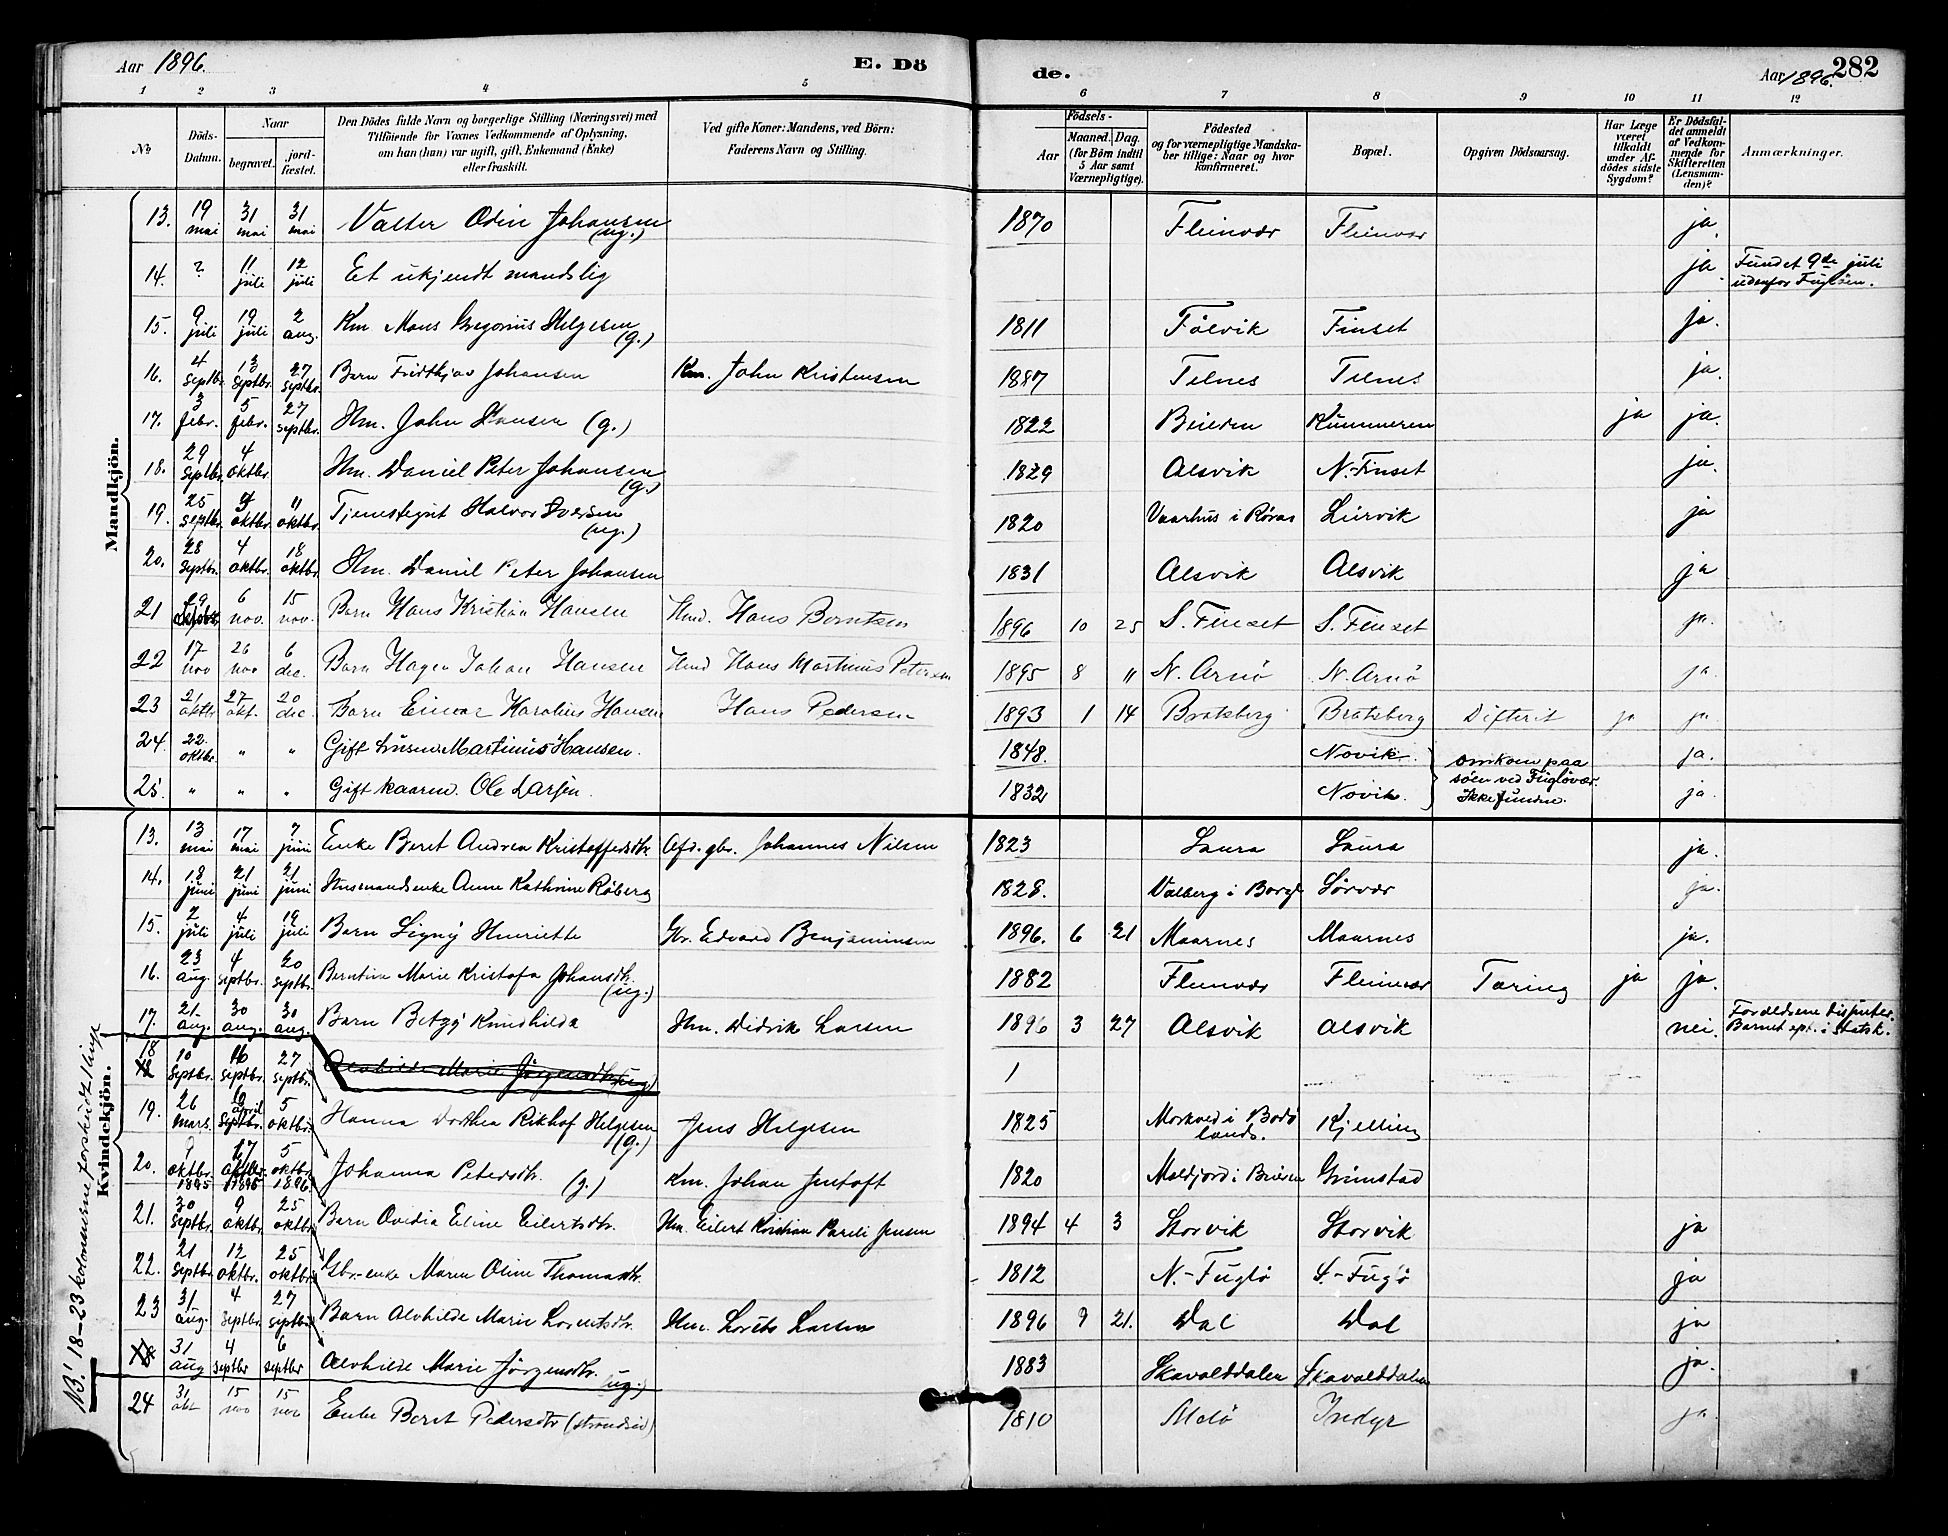 Aar 1896. E. Dö de. Aar 1896. 282
1 2 3 4 5 6 7 8 9 10 11 12
No Döds-Datum. Naar begravet. jord-fæstet. Den Dödes fulde Navn og borgerlige Stilling (Næringsvei) med Tilföiende for Voxnes Vedkommende af Oplysning, om han (hun) var ugift, gift, Enkemand (Enke) eller fraskilt. Ved gifte Koner: Mandens, ved Börn: Faderens Navn og Stilling. Födsels- Aar Maaned. Dag. (for Börn indtil 5 Aar samt Værnepligtige). Födested og for værnepligtige Mandskaber tillige: Naar og hvor konfirmeret. Bopæl. Opgiven Dödsaarsag. Har Læge været tilkaldt under Afdödes sidste Sygdom? Er Dödsfaldet anmeldt af Vedkommende for Skifteretten (Lensmanden)? Anmærkninger.
Mandkjön.
13. 19 mai 31 mai 31 mai Valter Odin Johansen (ug.) 1870 Fleinvær Fleinvær ja.
14. ? 11 juli 12 juli Et ukjendt mandslig ja. Fundet 9de juli udenfor Fugløen.
15. 9 juli 19 juli 2 aug. Km Mons Gregorius Helgesen (g.) 1811 Følvik Finset ja.
16. 4 septbr. 13 septbr. 27 septbr. Barn Fridthjov Johansen Km. John Kristensen 1887 Telnes Telnes ja.
17. 3 febr. 5 febr. 27 septbr. Hm. John Hansen (g.) 1822 Beieren Kunneren ja ja.
18. 29 septbr. 4 oktbr. Hm. Daniel Peter Johansen (g.) 1829 Alsvik N.-Finset ja.
19. 25 septbr. 4 oktbr. 11 oktbr. Tjenestegut Halvor Iversen (ug.) 1820 Vaarhus i Røraas Lurvik ja
20. 28 septbr. 4 oktbr. 18 oktbr. Hm. Daniel Peter Johansen 1831 Alsvik Alsvik ja
21 29 oktober 6 nov. 15 nov. Barn Hans Kristian Hansen Hmd. Hans Berntsen 1896 10 25 S. Finset S. Finset ja.
22 17 nov 26 nov 6 dec. Barn Hagen Johan Hansen Hmd Hans Martinus Petersen 1895 8 " N. Arnø N. Arnø ja.
23 21 oktbr 27 okt. 20 dec. Barn Einar Karolius Hansen Hans Pedersen 1893 1 14 Bratsberg Bratsberg Difterit ja ja.
24. 22. oktbr. " " Gift Martinus Hansen. 1848. Novik. omkom paa søen ved Fugløvær. Ikke funden. ja.
25. " " " Gift kaarm. Ole Larsen. 1832 Novik. ja.
Kvindekjön.
13. 13 mai 17 mai 7 juni Enke Beret Andrea Kristoffersdtr. Afd. gbr. Johannes Nilsen 1823 Saura Saura ja.
14. 18 juni 21 juni 21 juni Husmandsenke Anne Kathrine Røberg 1828. Valberg i Borge Sørvær ja.
15. 2 juli 4 juli 19 juli Barn Signy Henriette Gbr. Edvard Benjaminsen 1896. 6 21 Maarnes Maarnes ja.
16. 23 aug. 4 septbr. 20 septbr. Berntine Marie Kristofa Johansdtr. (ug.) 1882 Fleinvær Fleinvær Tæring ja ja.
17. 21 aug. 30 aug. 30 aug. Barn Betzy Knudhilda Hm. Didrik Larsen 1896 3 27 Alsvik Alsvik nei. Forældrene dissenter. Barnet opt. i Statsk.
18 10 septbr. 16 septbr. 27 septbr. Alvhilde Marie Jørgensdtr. (ug.) 1
19. 26 mars. 10 april septbr. 5 oktbr. Hanna Dorthea Rikhof Helgesen (g.) Jens Helgesen 1825 Morkved i Bodø lands. Kjelling
20. 9 oktbr. 1895 17 oktbr. 1895 5 oktbr. 1896 Johanna Petersdtr. (g.) Km. Johan Jentoft 1820 Moldjord i Beieren Grimstad
21. 30 septbr. 9 oktbr. 25 oktbr. Barn Ovidia Eline Eilertsdtr. Hm. Eilert Kristian Pareli Jensen 1894 4 3 Storvik Storvik ja
22. 21 septbr. 12 oktbr. 25 oktbr. Gbr.-enke Maren Oline Thomasdtr. 1812 N.-Fuglø S.-Fuglø ja
23 31 aug. 4 septbr. 27 septbr. Barn Alvhilde Marie Lorentsdtr. Hm. Lorents Larsen 1896 9 21. Dal Dal ja
18 31 aug 4 septbr 6 septbr Alvhilde Marie Jörgensdtr. (ug.) 1883 Skavolddalen Skavolddalen ja.
24 31 okt 15 nov 15 nov Enke Berit Pedersdtr (strandsid) 1810 Melø Indyr ja.
NB! 18-23 kolonnerne forskudt 1 linje